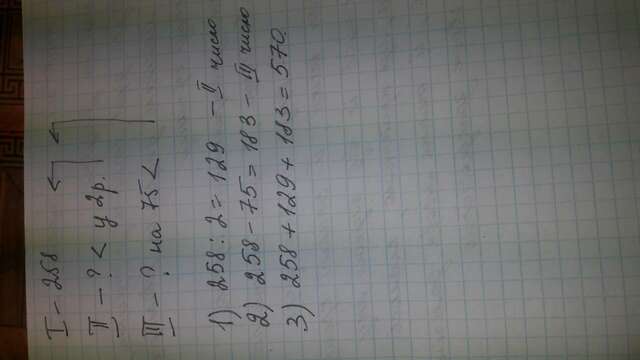 I - 258
II - ? < у 2р.
III - ? на 75 <
1) 258 : 2 = 129 - II число
2) 258 - 75 = 183 - III число
3) 258 + 129 + 183 = 570